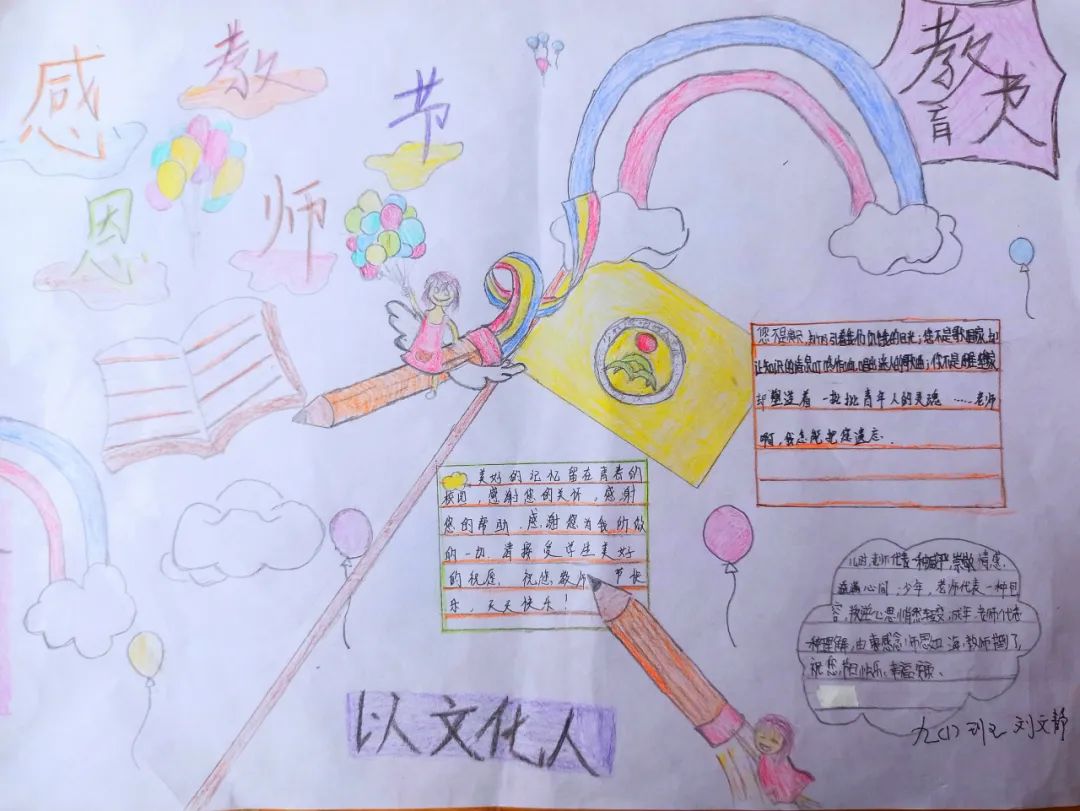 感恩教师节
教书
育人
您不是演员,却吸引着我们饥饿的目光;您不是歌唱家,却
让知识的清泉叮咚作响,唱出迷人的歌曲;你不是雕塑家
却塑造着一批批青年人的灵魂……老师
啊,我怎能把您遗忘.
美好的记忆留在青春的
校园,感谢您的关怀,感谢
您的帮助.感谢您为我的做
的一切.请接受学生美好
的祝愿.祝您教师节快
乐,天天快乐!
儿时,老师代表一种威严,崇敬情感,
溢满心间:少年,老师代表一种包
容,叛逆心思悄然转变,成年,老师代表
一种理解,由衷感念师恩如海,教师节到了,
祝您,节日快乐,幸福安康、
以文化人
九(1)班 刘文静